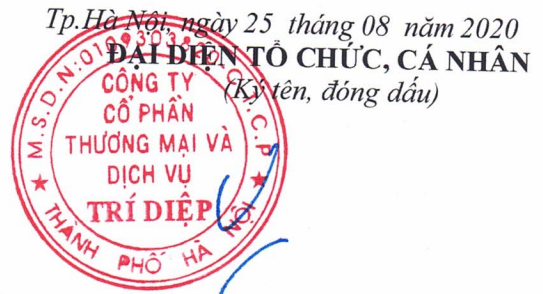 Tp.Hà Nội, ngày 25 tháng 08 năm 2020
ĐẠI DIỆN TỔ CHỨC, CÁ NHÂN
(Ký tên, đóng dấu)
CÔNG TY
CỔ PHẦN
THƯƠNG MẠI VÀ
DỊCH VỤ
TRÍ DIỆP
THÀNH PHỐ HÀ NỘI